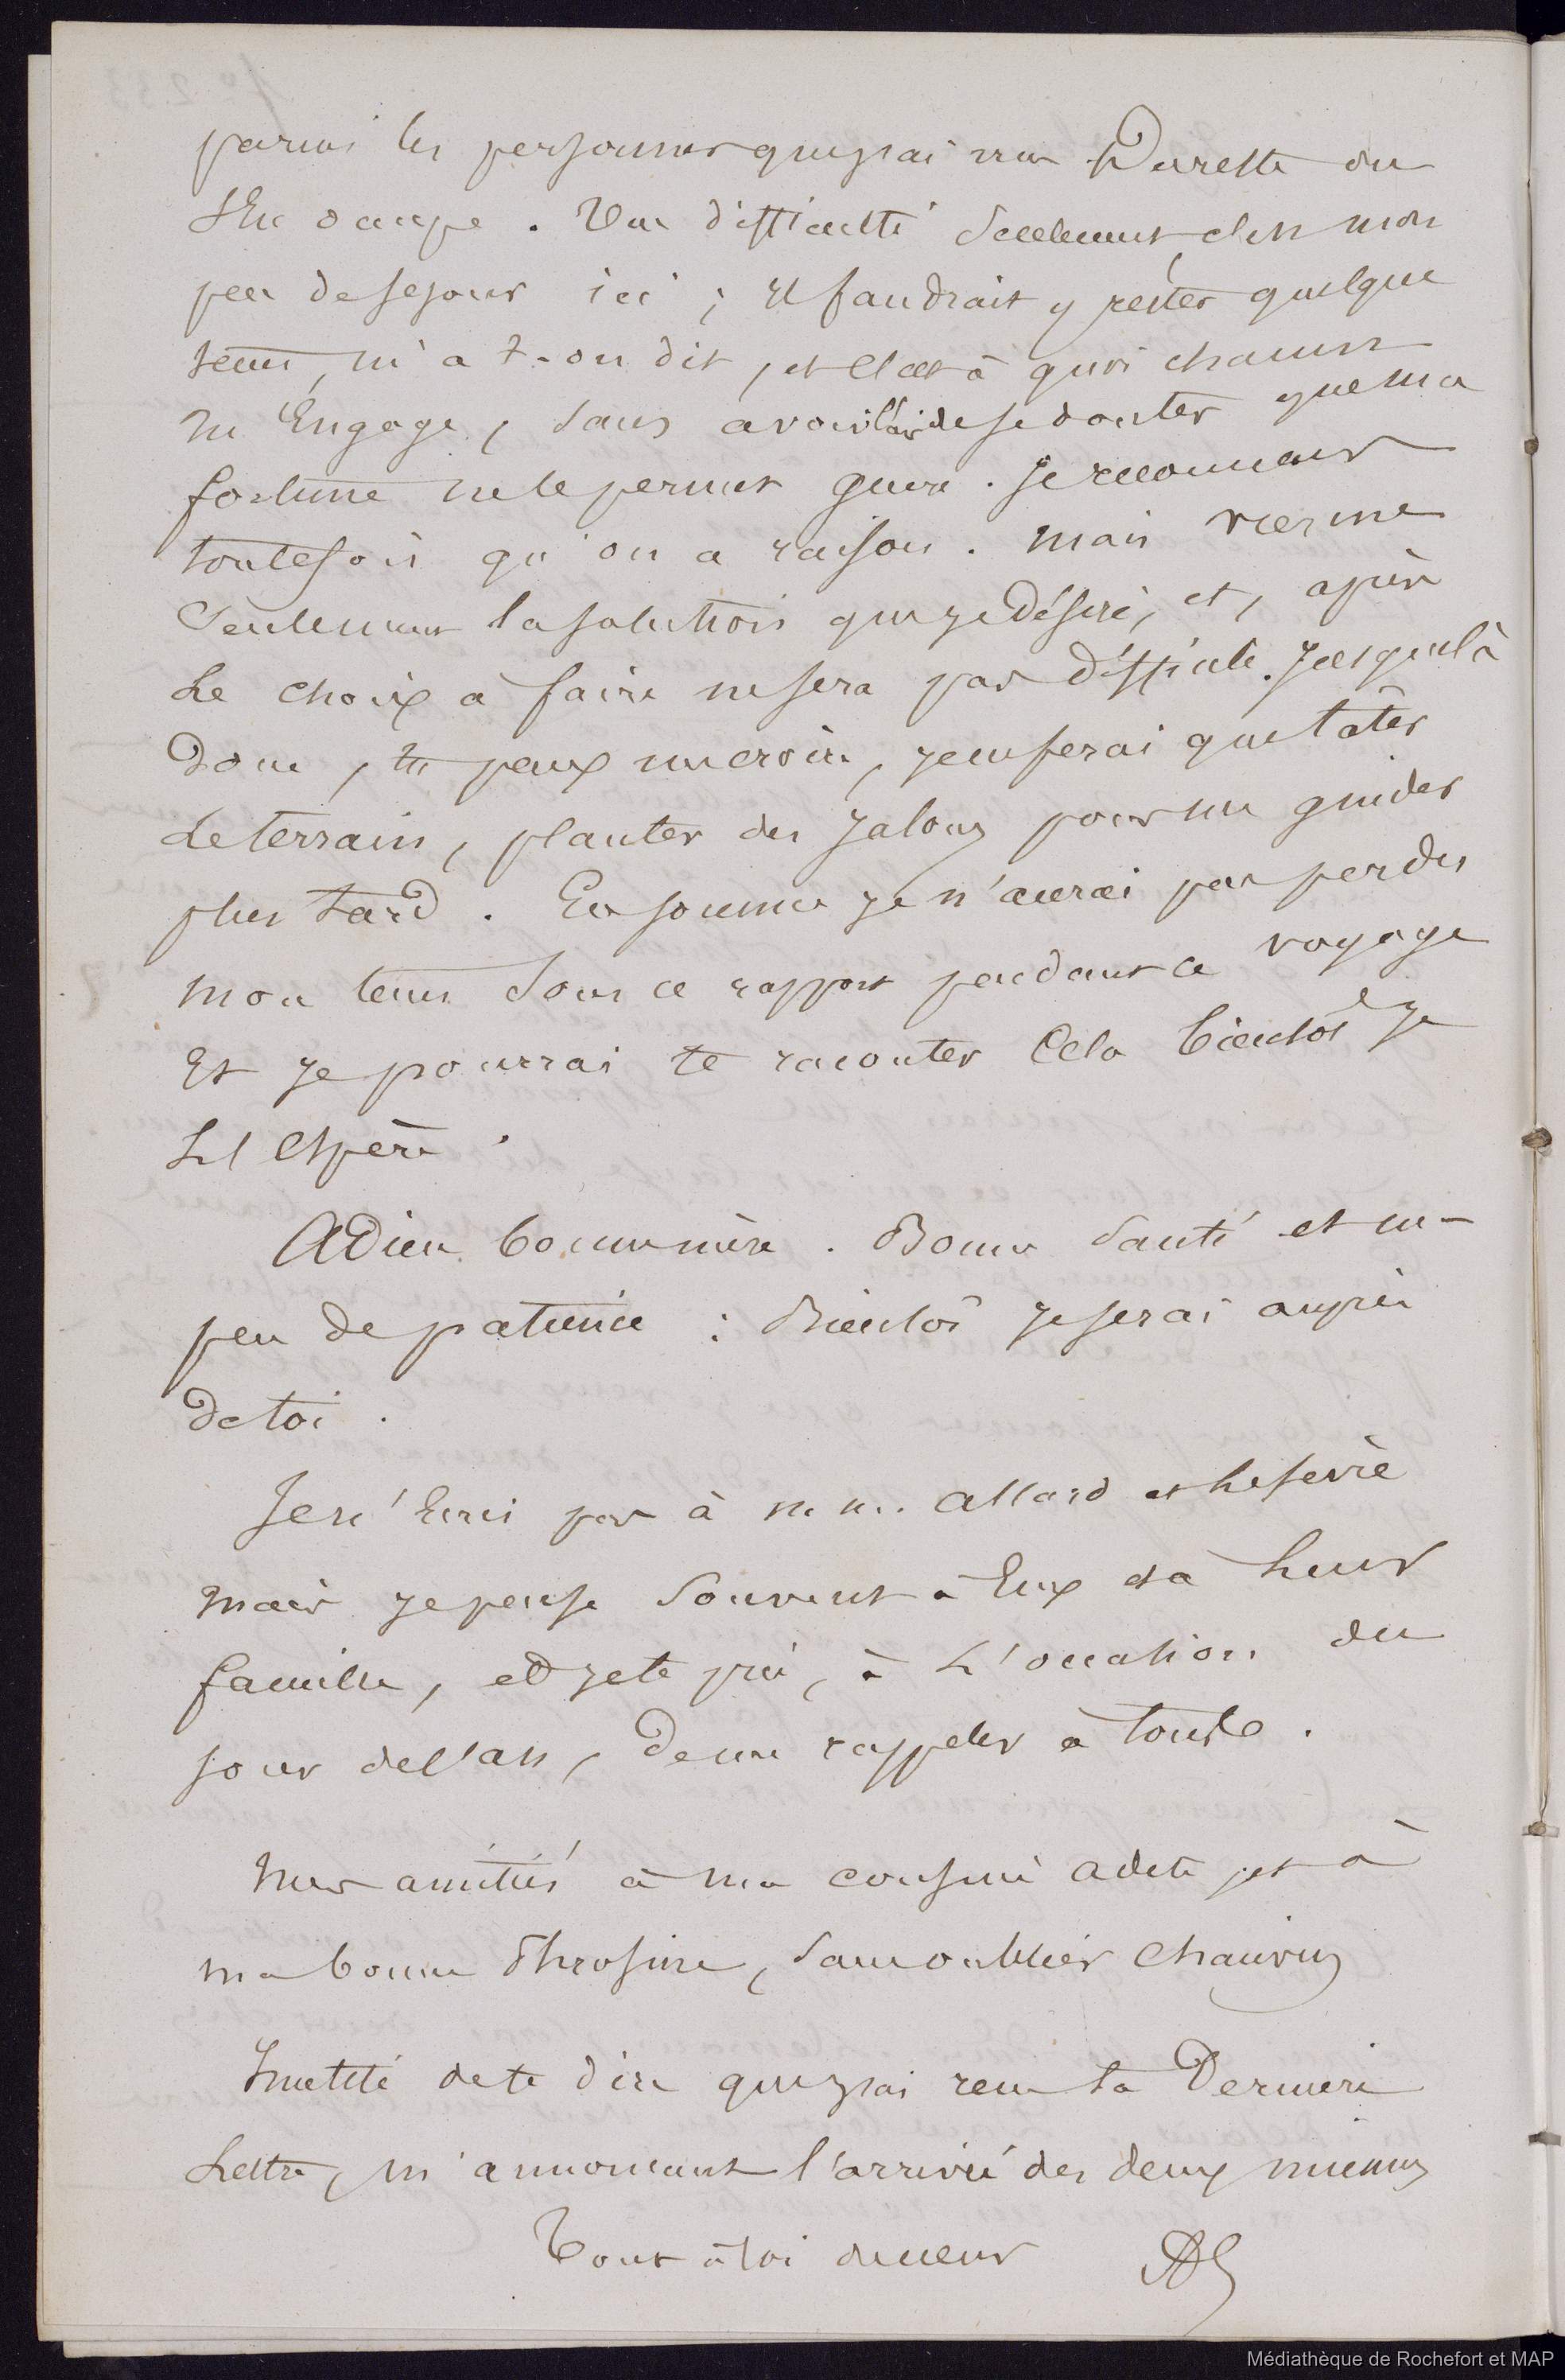 parmi les personnes que j'ai vues Dureste on
s'En occupe. Une difficulté seulement, c'est mon
peu de sejour ici ; il faudrait y rester quelque
tems, m'a t-on dit, et c'est à quoi chacun
m'Engage, sans avoir l'air de se douter que ma
fortune ne le permet guère. Je reconnais
toutefois qu'on a raison. mais vienne
seulement la solution que je désire, et, après
Le choix à faire ne sera pas difficile. Jusque là
donc, tu peux me croire, je ne ferai que tâter
Le terrain, planter des jalons pour me guider
plus tard. En somme je n'aurai pas perdu
mon tems sous ce rapport pendant ce voyage
Et je pourrai te raconter Cela bientôt je
L'Espère.
Adieu bonne mère. Bonne santé et un
peu de patience : Bientôt je serai auprès
de toi.
Je n'Ecris pas à m m. Allard et Lefevre
mais je pense souvent à Eux et à Leur
famille, et je te prie, à L'occasion du
jour de l'an, de me rappeler à tous.
Mes amitiés à ma cousine adele, et à
ma bonne Phrosine, sans oublier Chauvin
Inutile de te dire que j'ai reçu ta Dernière
Lettre, m'annonçant l'arrivée des deux miennes
Tout à toi de cœur
Médiathèque de Rochefort et MAP